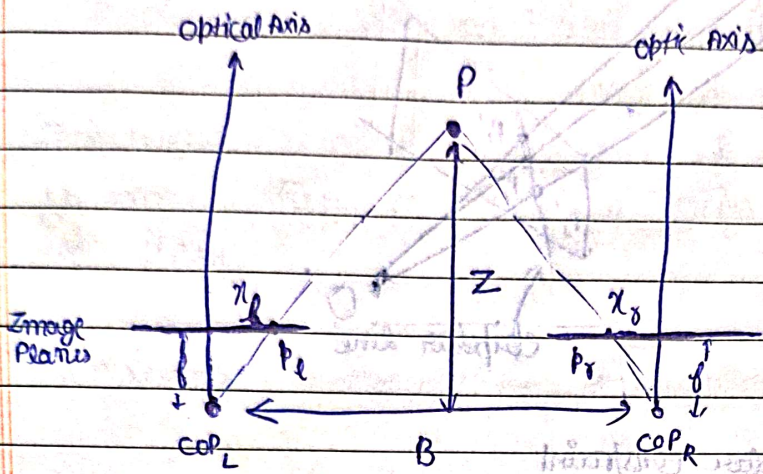 Optical Axis
Optic Axis
P
Z
x_l
x_r
Image
Planes
p_l
p_r
f
f
COP_L
B
COP_R